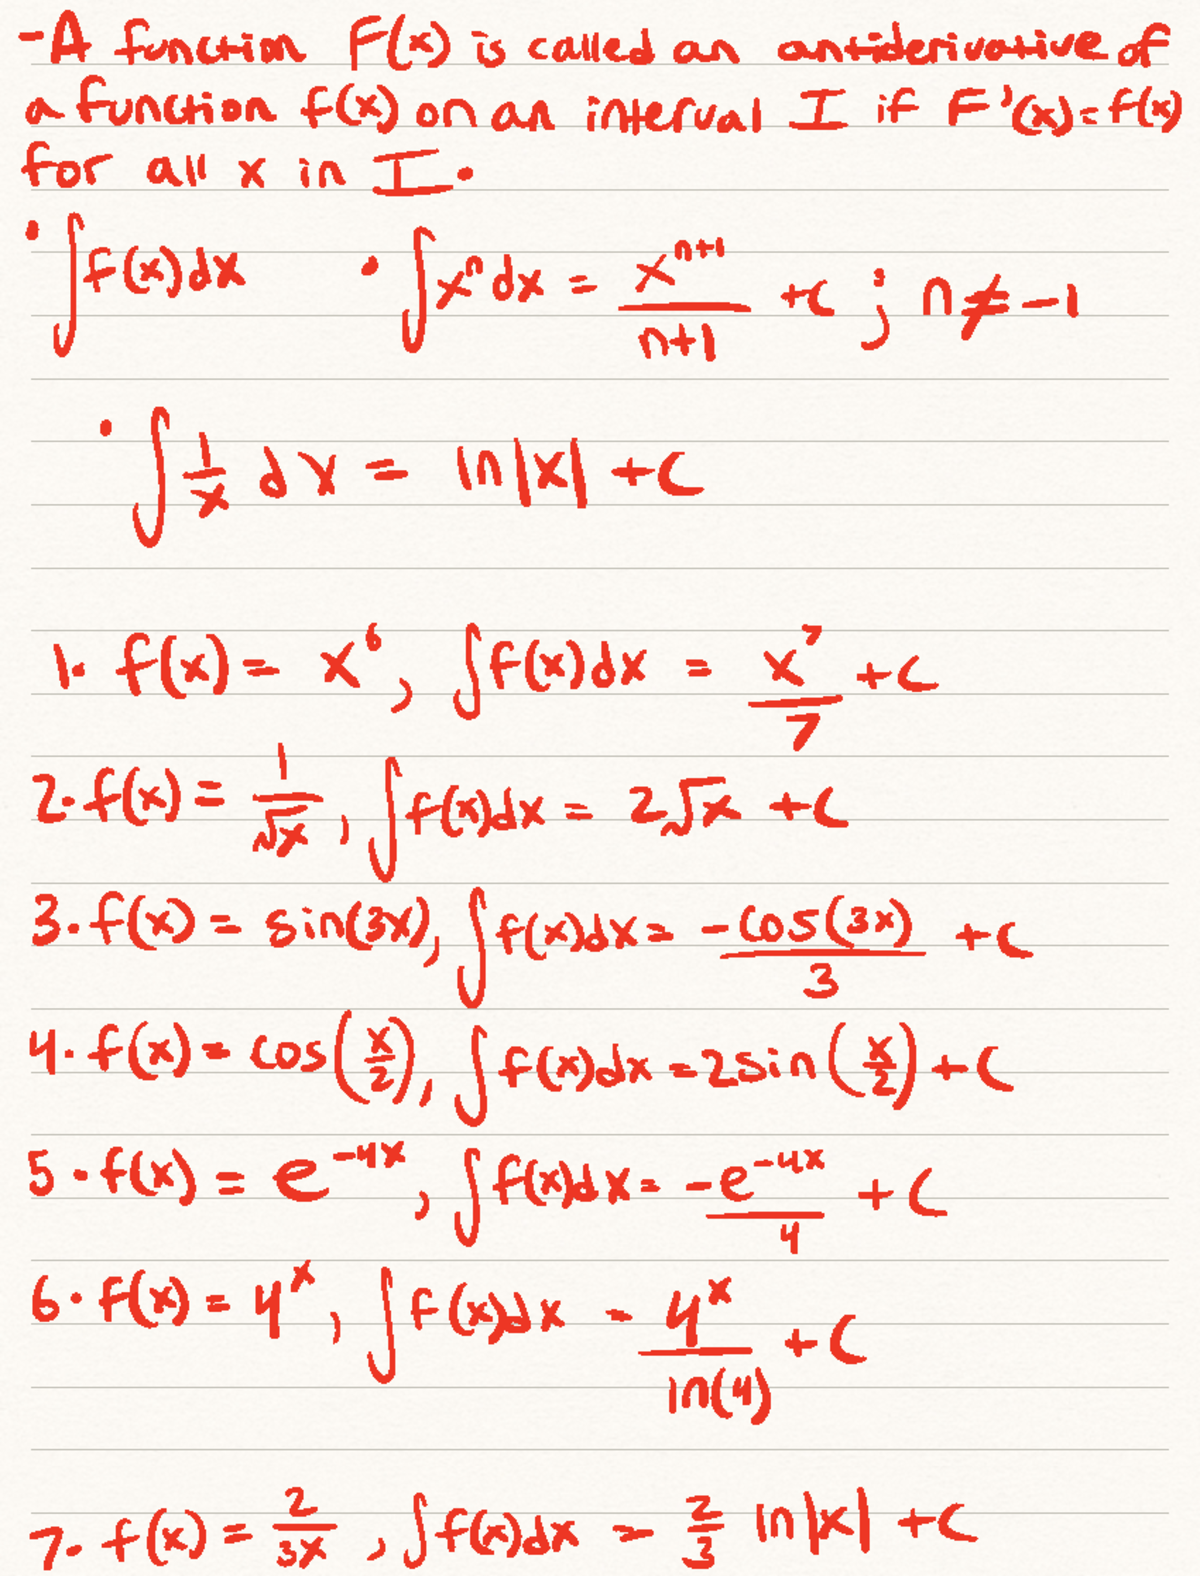 -A function F(x) is called an antiderivative of
a function f(x) on an interval I if F'(x)=f(x)
for all x in I.
• ∫f(x)dx • ∫xⁿdx = xⁿ⁺¹/n+1 +C ; n≠-1
• ∫1/x dx = ln|x| +C
1. f(x) = x⁶, ∫f(x)dx = x⁷/7 +C
2. f(x) = 1/√x, ∫f(x)dx = 2√x +C
3. f(x) = sin(3x), ∫f(x)dx = -cos(3x)/3 +C
4. f(x) = cos(x/2), ∫f(x)dx = 2sin(x/2) +C
5. f(x) = e^-4x, ∫f(x)dx = -e^-4x/4 +C
6. f(x) = 4^x, ∫f(x)dx = 4^x/ln(4) +C
7. f(x) = 2/3x, ∫f(x)dx = 2/3 ln|x| +C